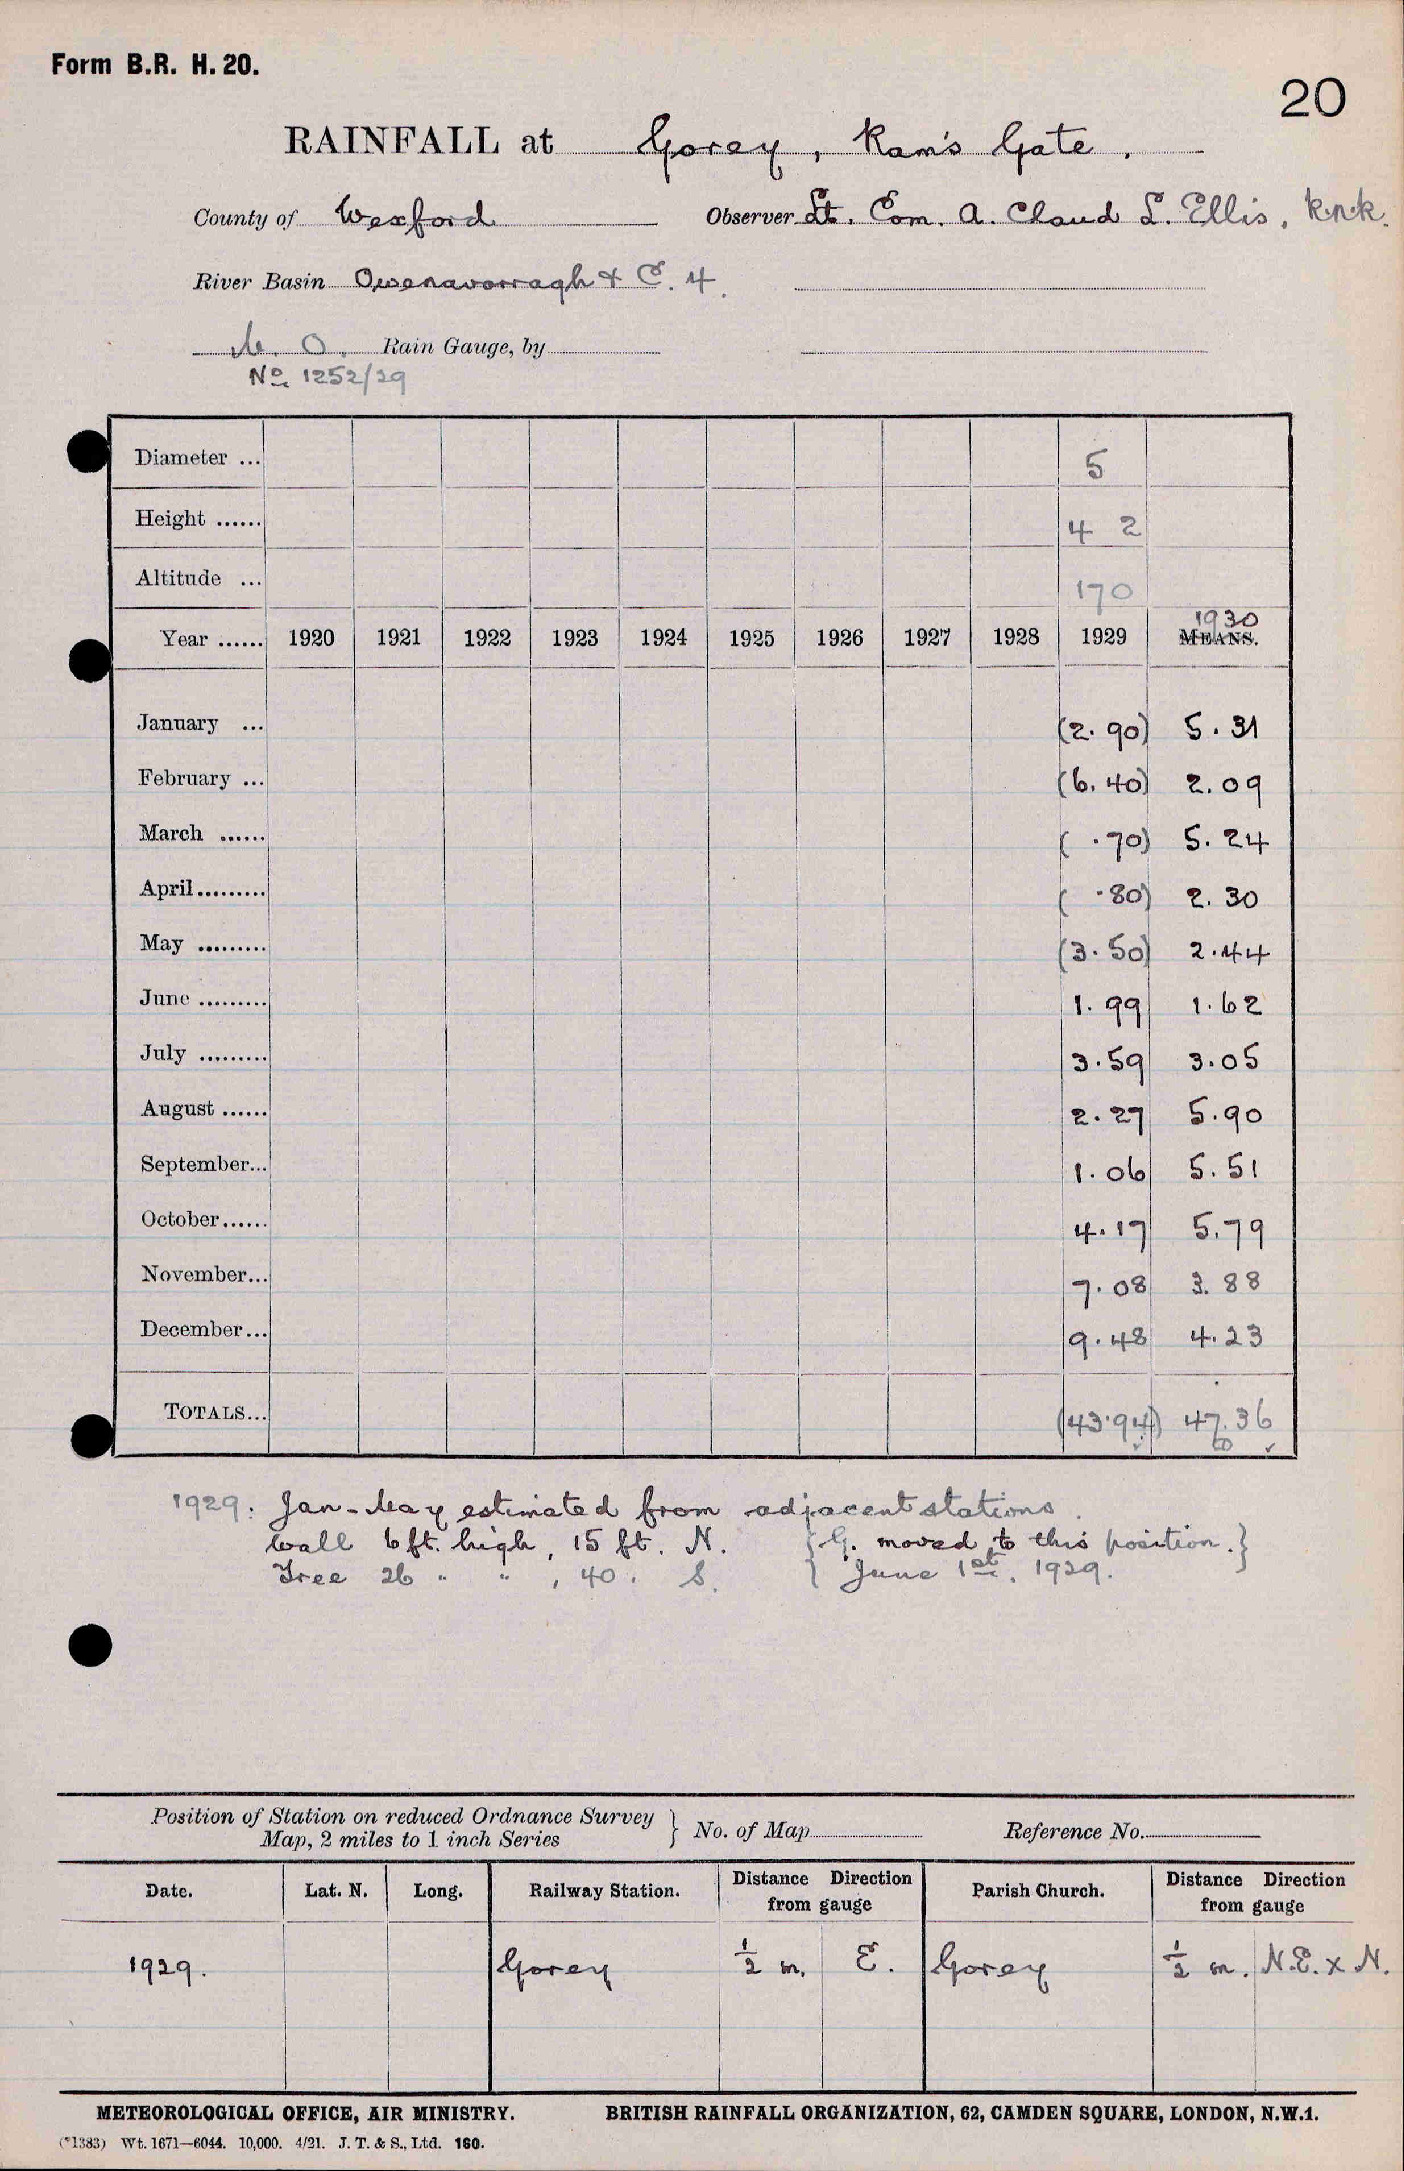 Form B.R. H. 20.
20
RAINFALL at Gorey, Ram's Gate.
County of Wexford Observer Lt. Com. A. Claud L. Ellis, R.N.R.
River Basin Owenavorragh & C. 4.
M. O. Rain Gauge, by
No. 1252/29
Diameter ... 5
Height ...... 4 2
Altitude ... 170
1930
Year ...... 1920 1921 1922 1923 1924 1925 1926 1927 1928 1929 MEANS.
January ... (2.90) 5.31
February ... (6.40) 2.09
March ...... ( .70) 5.24
April ......... ( .80) 2.30
May ......... (3.50) 2.44
June ......... 1.99 1.62
July ......... 3.59 3.05
August ...... 2.27 5.90
September... 1.06 5.51
October...... 4.17 5.79
November... 7.08 3.88
December... 9.48 4.23
TOTALS... (43.94) 47.36
1929. Jan-May estimated from adjacent stations.
Wall 6 ft. high, 15 ft. N. { G. moved to this position. }
Tree 26 " " , 40 . S. { June 1st. 1929. }
Position of Station on reduced Ordnance Survey
Map, 2 miles to 1 inch Series } No. of Map Reference No.
Date. Lat. N. Long. Railway Station. Distance Direction from gauge Parish Church. Distance Direction from gauge
1929. Gorey 1/2 m. E. Gorey 1/2 m. N.E. x N.
METEOROLOGICAL OFFICE, AIR MINISTRY. BRITISH RAINFALL ORGANIZATION, 62, CAMDEN SQUARE, LONDON, N.W.1.
(*1383) Wt. 1671—6044. 10,000. 4/21. J. T. & S., Ltd. 160.